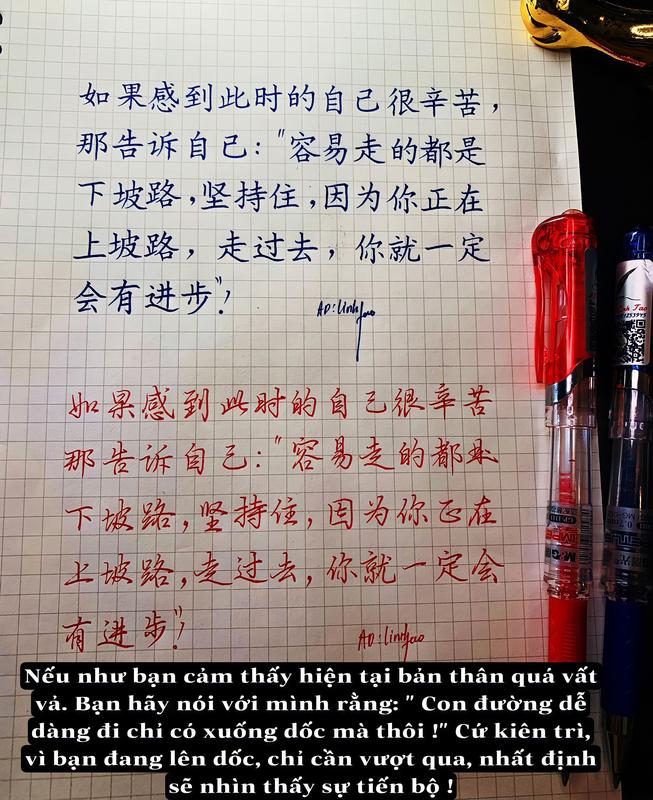 如果感到此时的自己很辛苦，
那告诉自己："容易走的都是
下坡路，坚持住，因为你正在
上坡路，走过去，你就一定
会有进步"！
AD:linhtao
如果感到此时的自己很辛苦
那告诉自己："容易走的都是
下坡路，坚持住，因为你正在
上坡路，走过去，你就一定会
有进步"！
AD:linhtao
M&G
Nếu như bạn cảm thấy hiện tại bản thân quá vất
vả. Bạn hãy nói với mình rằng: " Con đường dễ
dàng đi chỉ có xuống dốc mà thôi !" Cứ kiên trì,
vì bạn đang lên dốc, chỉ cần vượt qua, nhất định
sẽ nhìn thấy sự tiến bộ !